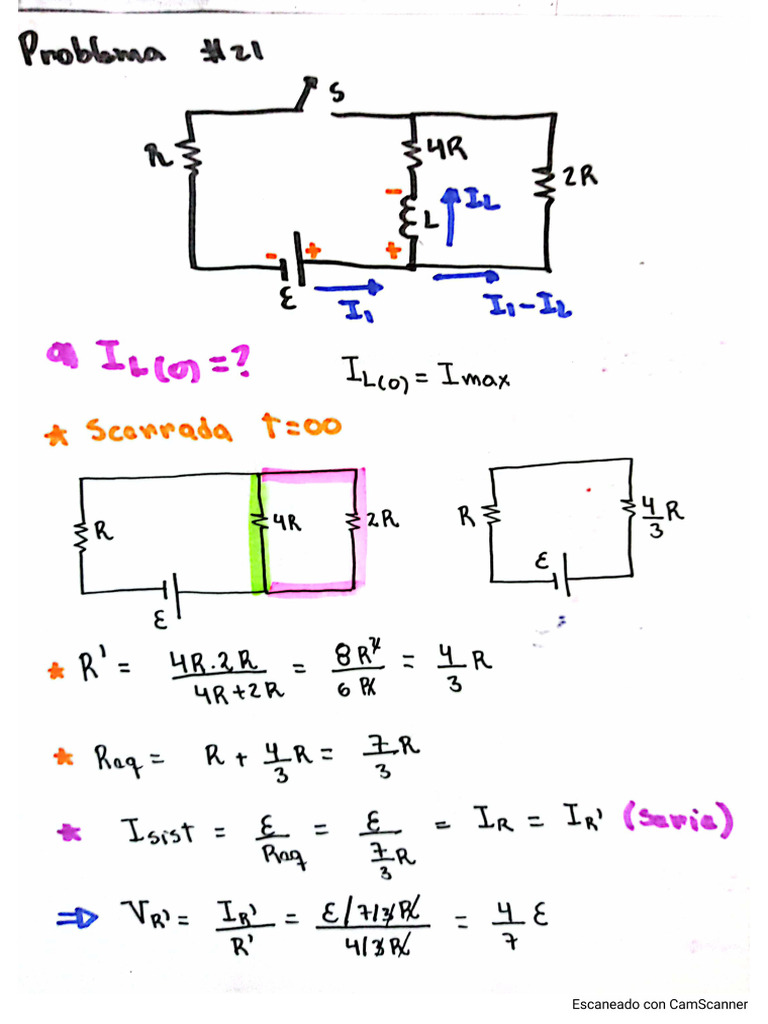 Problema #21
S
R
4R
2R
-
L
I_L
+
- +
ε
I₁
I₁-I_L
a) I_L(0)=?
I_L(0) = Imax
* Scerrada t=∞
R
4R
2R
ε
R
4/3 R
ε
* R' = 4R.2R / 4R+2R = 8R² / 6R = 4/3 R
* Req = R + 4/3 R = 7/3 R
* Isist = ε/Req = ε / 7/3 R = I_R = I_R' (Serie)
⇒ V_R' = I_R' / R' = ε/7/3R / 4/3R = 4/7 ε
Escaneado con CamScanner